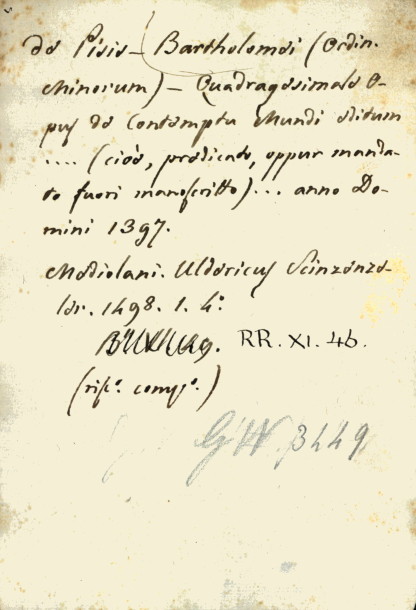 de Pisis – Bartholomei (Ordin.
Minorum) – Quadragesimale O-
pus de Contemptu Mundi editum
.... (cioè, predicato, oppur manda-
to fuori manoscritto)... anno Do-
mini 1397.
Mediolani. Uldericus Scinzenze-
ler. 1498. 1. 4.°
RR. XI. 46.
(risc.° comp.°)
GW. 3449